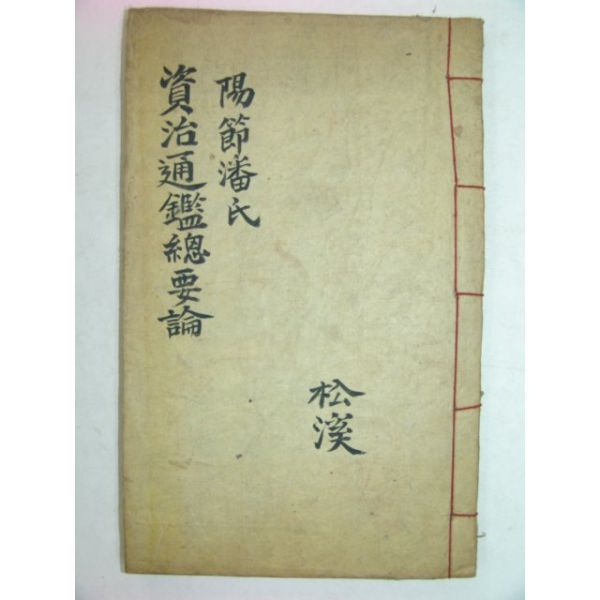 陽節潘氏
資治通鑑總要論
松溪